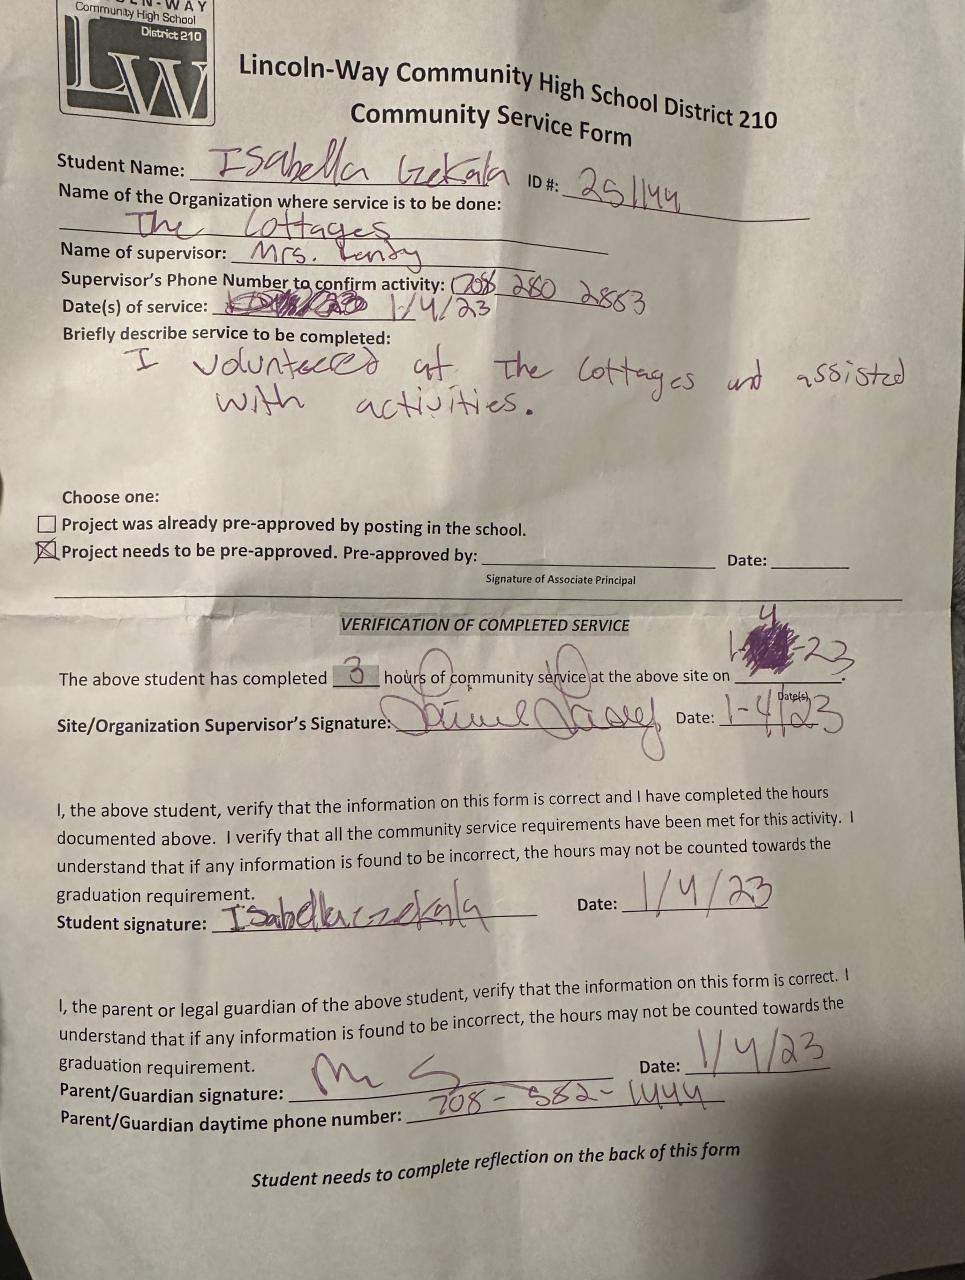 LN-WAY
Community High School
District 210
LW
Lincoln-Way Community High School District 210
Community Service Form
Student Name: Isabella Czekala ID #: 251144
Name of the Organization where service is to be done:
The Cottages
Name of supervisor: Mrs.
Supervisor's Phone Number to confirm activity: (708 280 2883
Date(s) of service: 1/4/23
Briefly describe service to be completed:
I volunteered at the Cottages and assisted
with activities.
Choose one:
Project was already pre-approved by posting in the school.
Project needs to be pre-approved. Pre-approved by: Date:
Signature of Associate Principal
VERIFICATION OF COMPLETED SERVICE
The above student has completed 3 hours of community service at the above site on 1-4-23.
Date(s)
Site/Organization Supervisor's Signature: Date: 1-4-23
I, the above student, verify that the information on this form is correct and I have completed the hours
documented above. I verify that all the community service requirements have been met for this activity. I
understand that if any information is found to be incorrect, the hours may not be counted towards the
graduation requirement.
Student signature: Isabella Czekala Date: 1/4/23
I, the parent or legal guardian of the above student, verify that the information on this form is correct. I
understand that if any information is found to be incorrect, the hours may not be counted towards the
graduation requirement.
Parent/Guardian signature: Date: 1/4/23
Parent/Guardian daytime phone number: 708-582-1444
Student needs to complete reflection on the back of this form